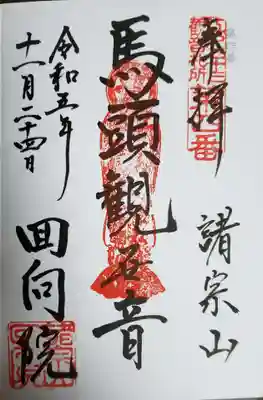 奉拝
諸宗山
馬頭観世音
令和五年
十一月二十四日
回向院